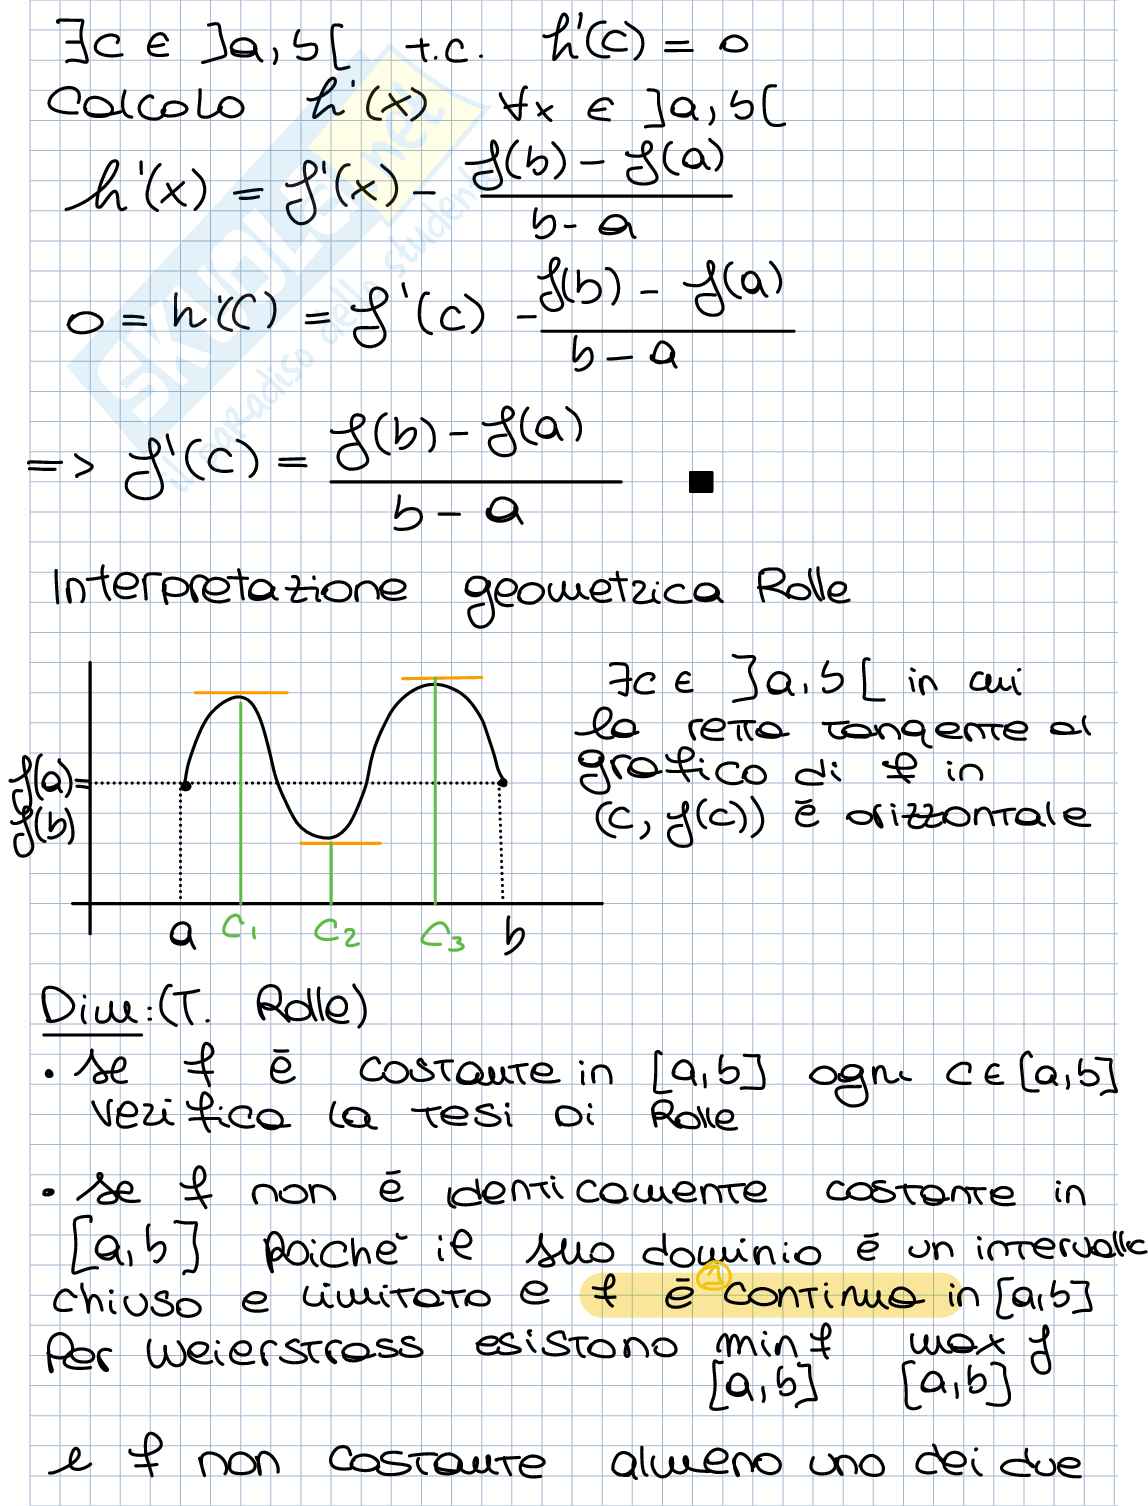 ∃c ∈ ]a,b[ t.c. h'(c) = 0
Calcolo h'(x) ∀x ∈ ]a,b[
h'(x) = f'(x) - (f(b) - f(a)) / (b - a)
0 = h'(c) = f'(c) - (f(b) - f(a)) / (b - a)
=> f'(c) = (f(b) - f(a)) / (b - a) ■
Interpretazione geometrica Rolle
∃c ∈ ]a,b[ in cui
la retta tangente al
grafico di f in
(c, f(c)) è orizzontale
f(a)=
f(b)
a c₁ c₂ c₃ b
Dim:(T. Rolle)
• se f è costante in [a,b] ogni c∈[a,b]
verifica la tesi di Rolle
• se f non è identicamente costante in
[a,b] poiché il suo dominio è un intervallo
chiuso e limitato e f è continua in [a,b]
1
Per Weierstrass esistono min f max f
[a,b] [a,b]
e f non costante almeno uno dei due
SKUOLA.net
il paradiso dello studente